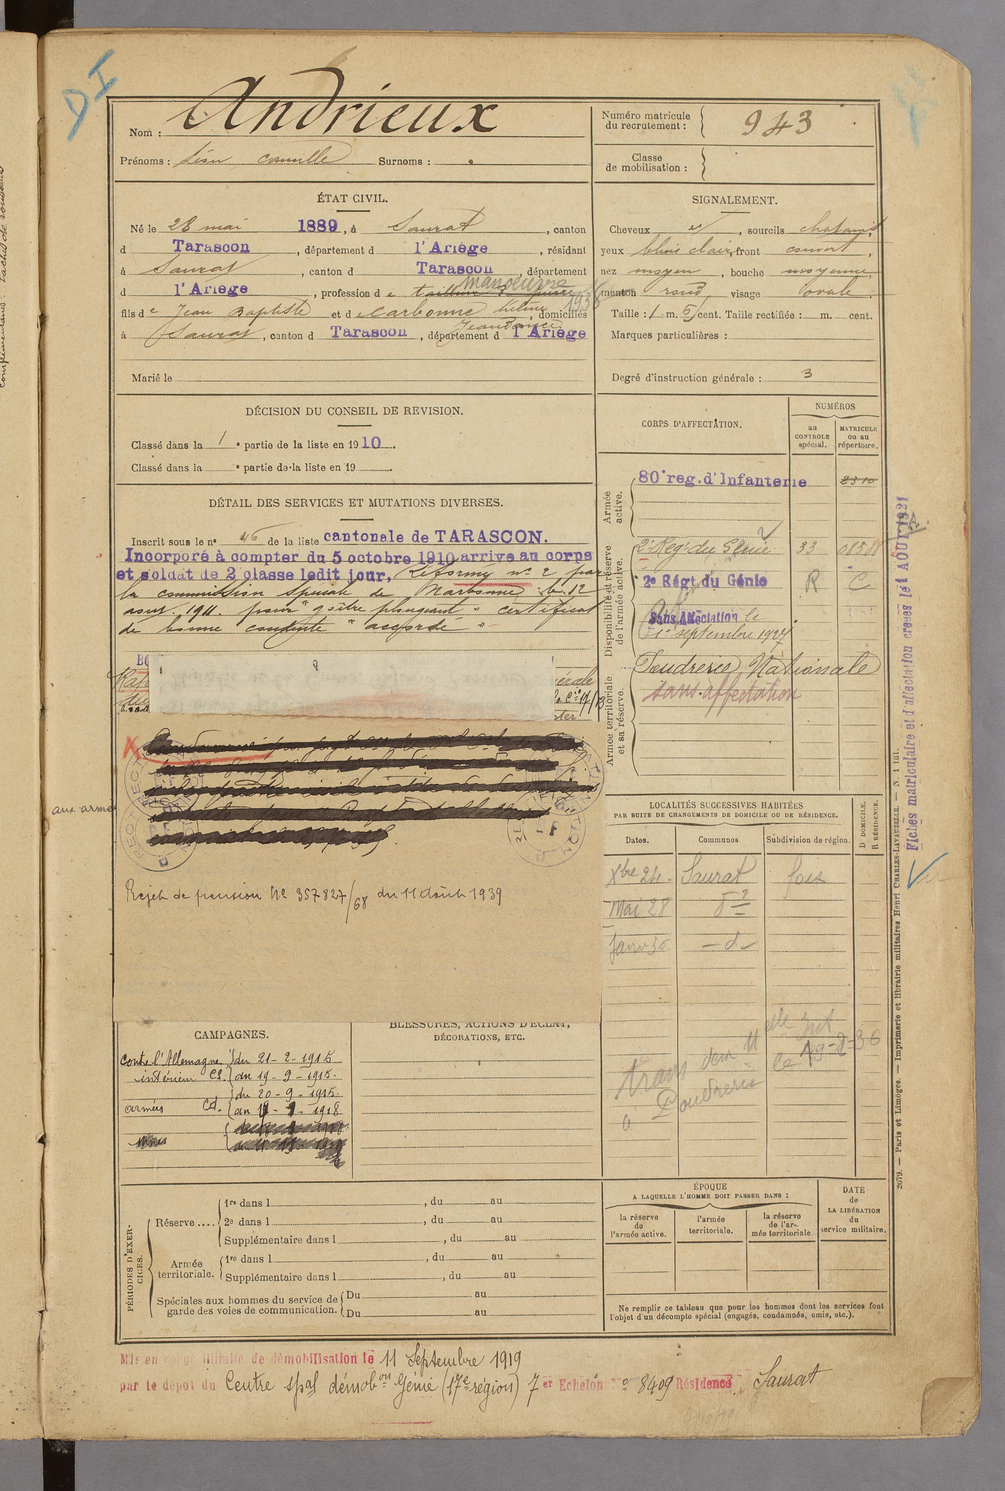 DI
Nom : Andrieux
Prénoms : Léon Camille Surnoms :
Numéro matricule du recrutement : 943
Classe de mobilisation :
ÉTAT CIVIL.
Né le 28 mai 1889, à Saurat, canton
d Tarascon, département d l'Ariège, résidant
à Saurat, canton d Tarascon, département
manoeuvre
d l'Ariège, profession d e
fils de Jean Baptiste et de Carbonne, domiciliés
à Saurat, canton d Tarascon, département d l'Ariège
Marié le
SIGNALEMENT.
Cheveux et, sourcils chatains
yeux bleus clair, front couvert
nez moyen, bouche moyenne
menton rond, visage ovale
Taille : 1 m. cent. Taille rectifiée : m. cent.
Marques particulières :
Degré d'instruction générale : 3
DÉCISION DU CONSEIL DE REVISION.
Classé dans la 1e partie de la liste en 1910.
Classé dans la e partie de la liste en 19 .
DÉTAIL DES SERVICES ET MUTATIONS DIVERSES.
Inscrit sous le n° 46 de la liste cantonale de TARASCON.
Incorporé à compter du 5 octobre 1910 arrive au corps
et soldat de 2 classe ledit jour, Réformé n° 2 par
la commission spéciale de Narbonne le 12
aout 1911 pour "goître plongeant" certificat
de bonne conduite "accordé"
aux armé
Rejet de pension N° 357827/68 du 11 Août 1939
CORPS D'AFFECTATION.
NUMÉROS
au CONTROLE spécial.
MATRICULE ou au répertoire.
Armée active.
80e reg. d'Infanterie 2310
Disponibilité et réserve de l'armée active.
2e Regt du Génie 33
2e Régt. du Génie R C
Sans Affectation le
1er septembre 1927
Armée territoriale et sa réserve.
Poudrerie Nationale
sans affectation
LOCALITÉS SUCCESSIVES HABITÉES
PAR SUITE DE CHANGEMENTS DE DOMICILE OU DE RÉSIDENCE.
Dates. Communes Subdivision de région. D DOMICILE. R RÉSIDENCE.
Xbre 24. Saurat Foix
Mai 28 d°
Janv 36 d
à Poudrerie
CAMPAGNES.
contre l'Allemagne du 21-2-1915
intérieur CS. au 19-9-1915.
du 20-9-1915.
armées CS.
BLESSURES, ACTIONS D'ÉCLAT,
DÉCORATIONS, ETC.
PÉRIODES D'EXERCICES.
Réserve.... 1re dans l , du au
2e dans l , du au
Supplémentaire dans l , du au
Armée territoriale. 1re dans l , du au
Supplémentaire dans l , du au
Spéciales aux hommes du service de garde des voies de communication. Du au
Du au
ÉPOQUE
A LAQUELLE L'HOMME DOIT PASSER DANS :
la réserve de l'armée active.
l'armée territoriale.
la réserve de l'armée territoriale
DATE de LA LIBÉRATION du service militaire.
Ne remplir ce tableau que pour les hommes dont les services font
l'objet d'un décompte spécial (engagés, condamnés, omis, etc.).
Fiches matriculaire et d'affectation créées le 1 AOUT 1921
2079. — Paris et Limoges. — Imprimerie et librairie militaires Henri CHARLES-LAVAUZELLE. — N. 1 int.
Mis en congé illimité de démobilisation le 11 Septembre 1919
par le dépôt du Centre spal démobon Génie (17e région) 7er Echelon N° 8409 Résidence Saurat